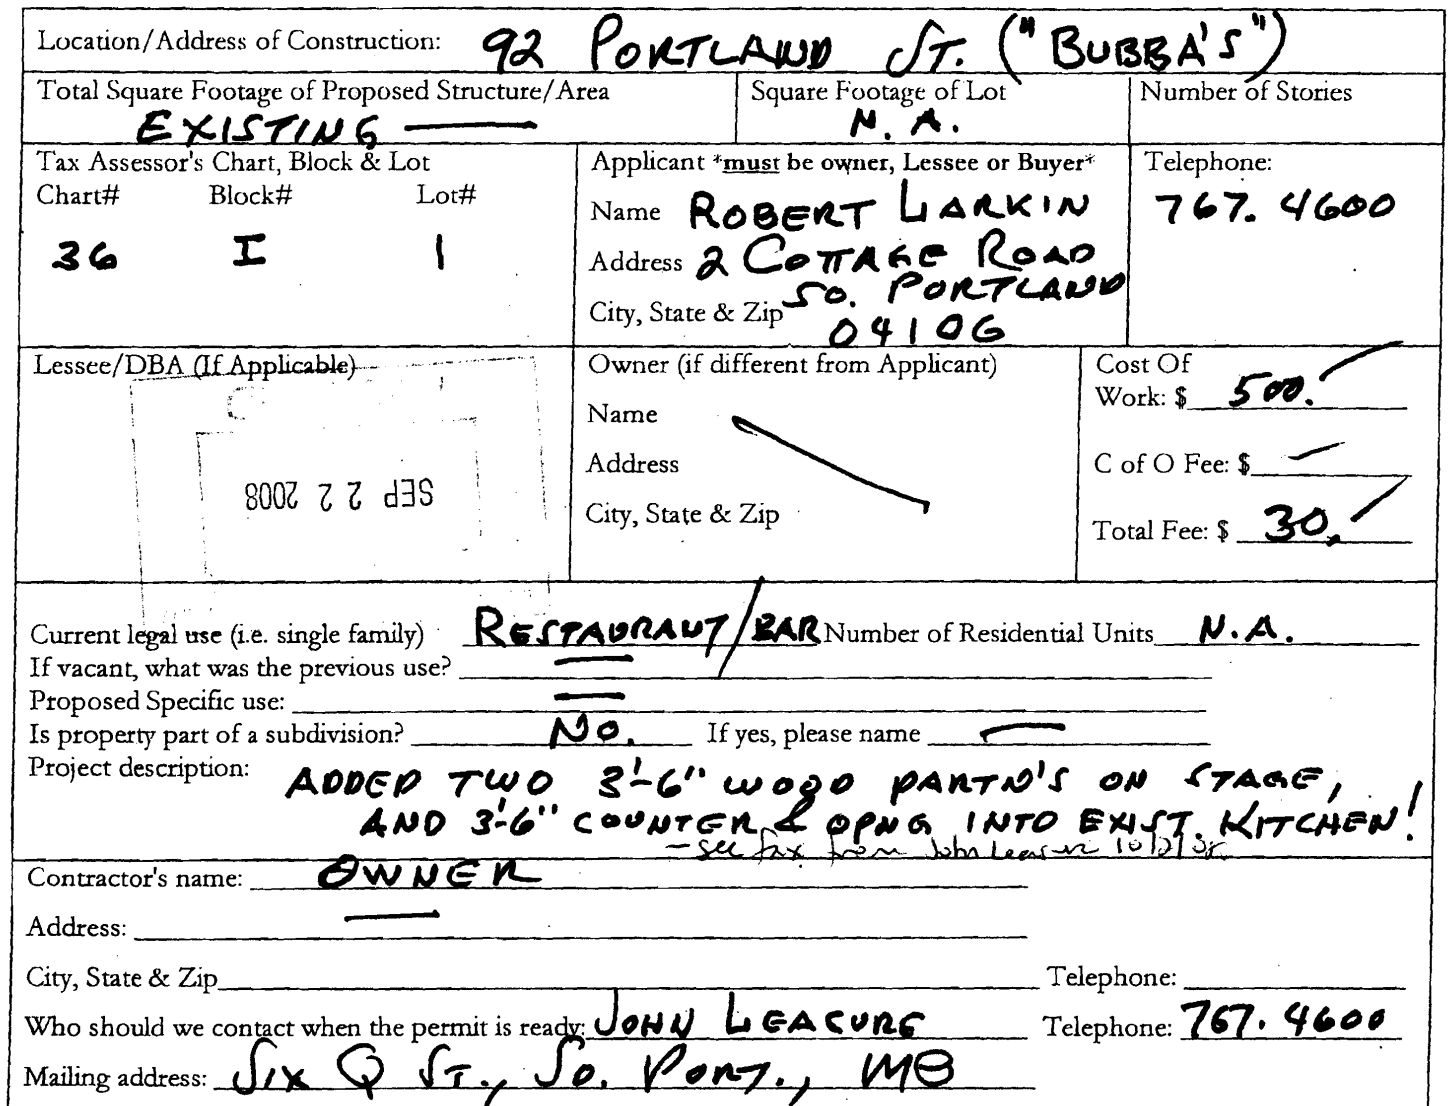 Location/Address of Construction: 92 PORTLAND ST. ("BUBBA'S")
Total Square Footage of Proposed Structure/Area
EXISTING —
Square Footage of Lot
N.A.
Number of Stories
Tax Assessor's Chart, Block & Lot
Chart# Block# Lot#
36 I 1
Applicant *must be owner, Lessee or Buyer*
Name ROBERT LARKIN
Address 2 COTTAGE ROAD
City, State & Zip SO. PORTLAND
04106
Telephone:
767.4600
Lessee/DBA (If Applicable)
SEP 22 2008
Owner (if different from Applicant)
Name
Address
City, State & Zip
Cost Of
Work: $ 500.
C of O Fee: $ —
Total Fee: $ 30.
Current legal use (i.e. single family) RESTAURANT/BAR Number of Residential Units N.A.
If vacant, what was the previous use? —
Proposed Specific use: —
Is property part of a subdivision? NO. If yes, please name —
Project description: ADDED TWO 3'-6" WOOD PARTN'S ON STAGE,
AND 3'-6" COUNTER & OPNG INTO EXIST. KITCHEN!
- see fax from John Leasure 10/2/08
Contractor's name: OWNER
Address: —
City, State & Zip Telephone:
Who should we contact when the permit is ready: JOHN LEASURE Telephone: 767.4600
Mailing address: SIX Q ST., SO. PORT., ME